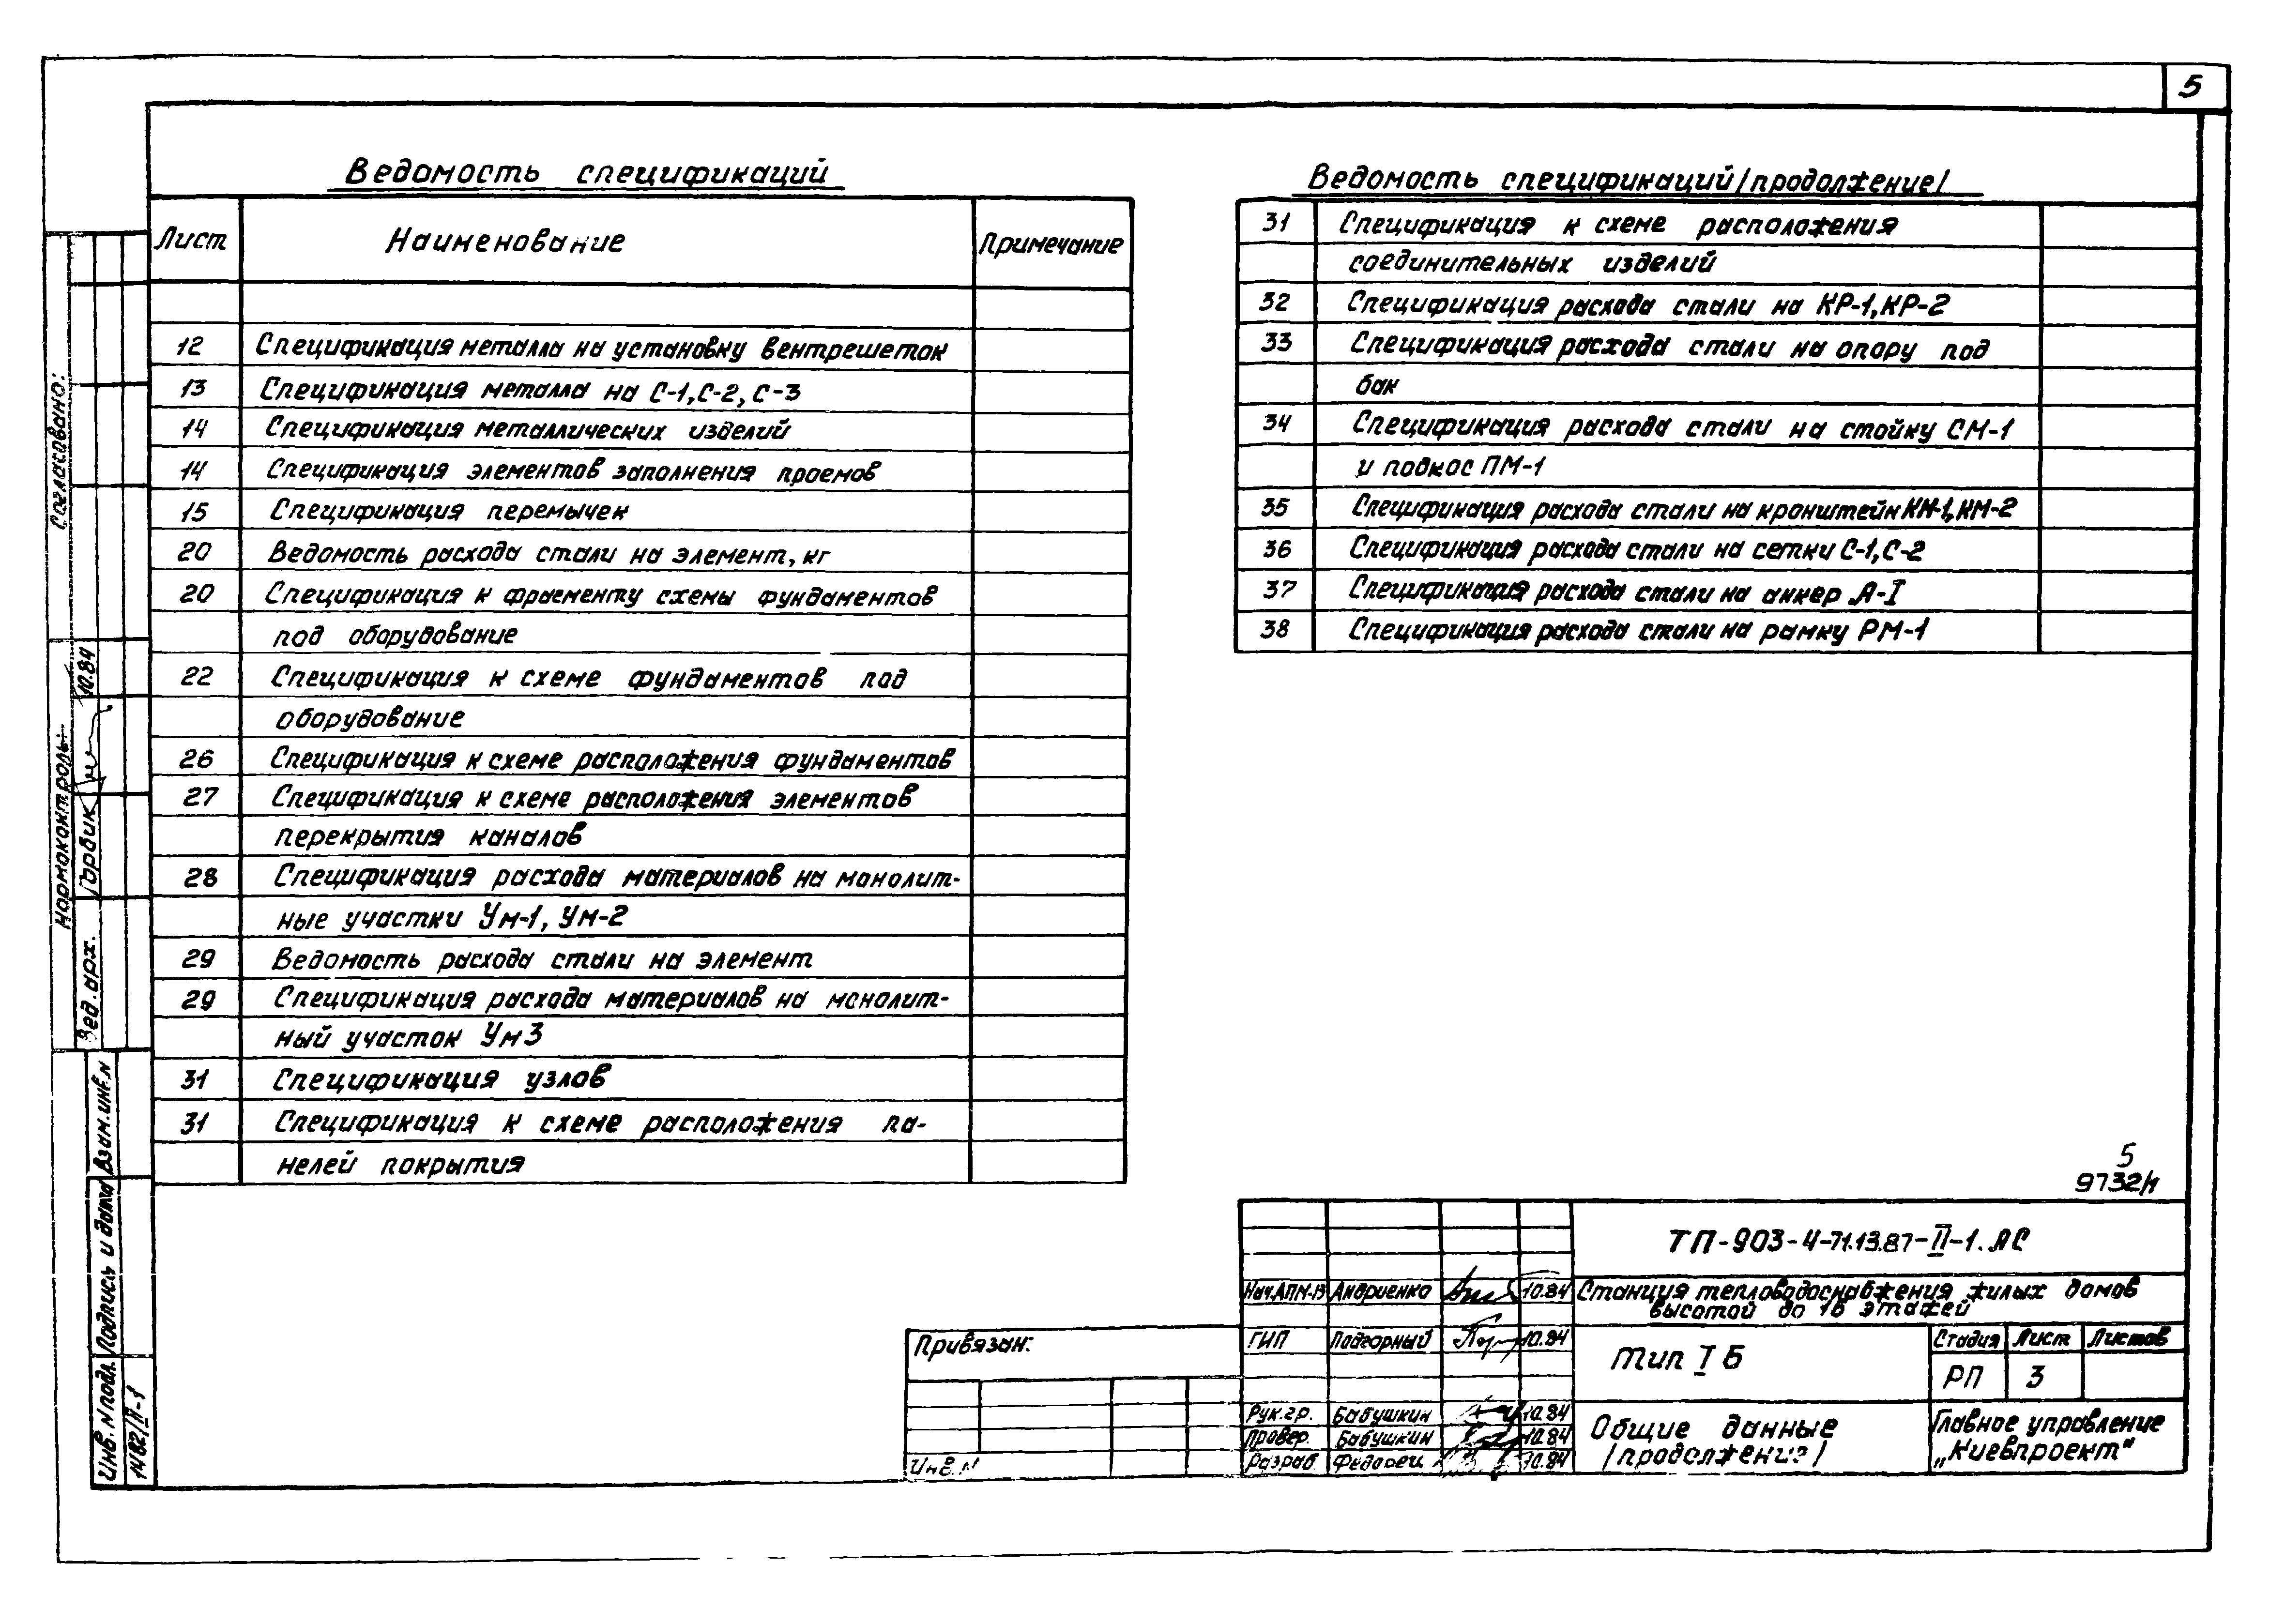 5
Ведомость спецификаций
Лист Наименование Примечание
12 Спецификация металла на установку вентрешеток
13 Спецификация металла на С-1, С-2, С-3
14 Спецификация металлических изделий
14 Спецификация элементов заполнения проемов
15 Спецификация перемычек
20 Ведомость расхода стали на элемент, кг
20 Спецификация к фрагменту схемы фундаментов
под оборудование
22 Спецификация к схеме фундаментов под
оборудование
26 Спецификация к схеме расположения фундаментов
27 Спецификация к схеме расположения элементов
перекрытия каналов
28 Спецификация расхода материалов на монолит-
ные участки Ум-1, Ум-2
29 Ведомость расхода стали на элемент
29 Спецификация расхода материалов на монолит-
ный участок Ум3
31 Спецификация узлов
31 Спецификация к схеме расположения па-
нелей покрытия
Ведомость спецификаций /продолжение/
31 Спецификация к схеме расположения
соединительных изделий
32 Спецификация расхода стали на КР-1, КР-2
33 Спецификация расхода стали на опору под
бак
34 Спецификация расхода стали на стойку СМ-1
и подкос ПМ-1
35 Спецификация расхода стали на кронштейн КМ-1, КМ-2
36 Спецификация расхода стали на сетки С-1, С-2
37 Спецификация расхода стали на анкер А-I
38 Спецификация расхода стали на рамку РМ-1
5
9732/1
ТП-903-4-71.13.87-II-1.АС
Нач.АПМ-13 Андриенко 10.84
Станция тепловодоснабжения жилых домов
высотой до 16 этажей
ГИП Подгорный 10.84
Тип I Б
Стадия Лист Листов
РП 3
Рук.гр. Бабушкин 10.84
Провер. Бабушкин 10.84
Разраб. Федорец 10.84
Общие данные
/продолжение/
Главное управление
„Киевпроект"
Привязан:
Инв. N
Согласовано:
Нормоконтроль:
Горвик 10.84
Вед. арх.
Взам. инв. N
Подпись и дата
Инв. N подл.
1482/II-1